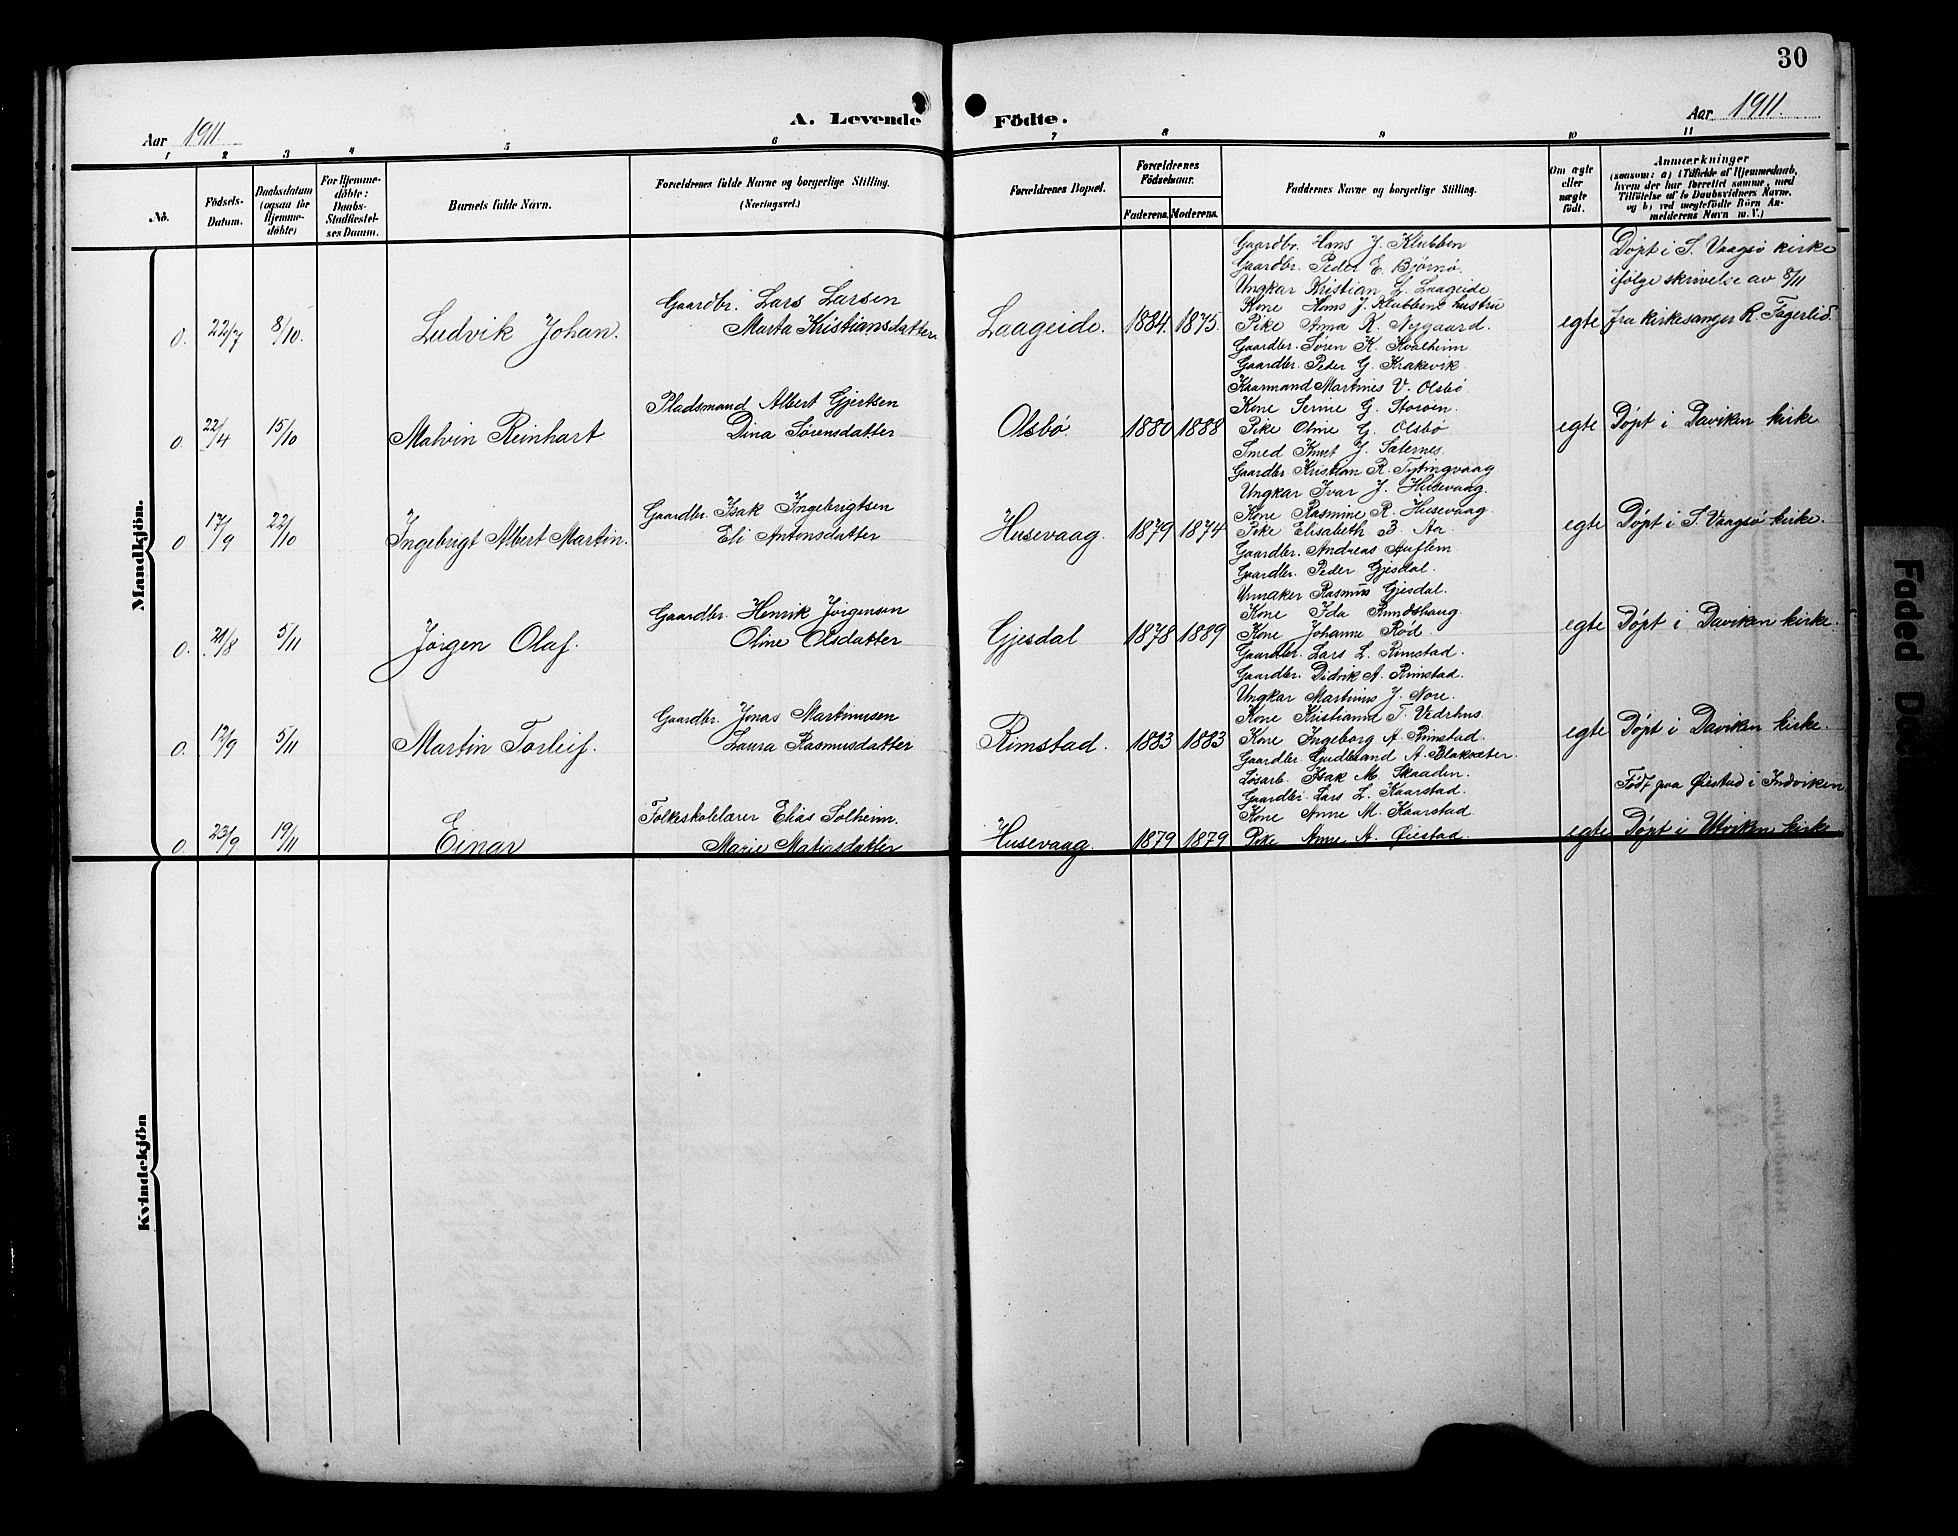 30
Aar 1911.
A. Levende Födte.
Aar 1911.
1 2 3 4 5 6 7 8 9 10 11
No.
Födsels-
Datum.
Daabsdatum
(ogsaa for
Hjemme-
döbte)
For Hjemme-
döbte:
Daabs-
Stadfæstel-
ses Datum.
Barnets fulde Navn.
Forældrenes fulde Navne og borgerlige Stilling.
(Næringsvei.)
Forældrenes Bopæl.
Forældrenes
Födselsaar.
Faderens. Moderens.
Faddernes Navne og borgerlige Stilling.
Om ægte
eller
uægte
födt.
Anmærkninger
(saasom: a) i Tilfælde af Hjemmedaab,
hvem der har forrettet samme, med
Tilföielse af to Daabsvidners Navne.
og b) ved uægtefödte Börn An-
melderens Navn m. V.)
Mandkjön.
0. 22/7 8/10. Ludvik Johan.
Gaardbr. Lars Larsen
Marta Kristiansdatter
Laageide. 1884. 1875.
Gaardbr. Hans J. Klubben
Gaardbr. Peder E. Bjørnø.
Ungkar Kristian L. Laageide
Kone Hans J. Klubbens hustru
Pike Anna K. Nygaard.
egte
Døpt i S. Vaagsø kirke
ifølge skrivelse av 8/11
fra kirkesanger R. Fagerlid.
0 22/4 15/10 Malvin Reinhart
Pladsmand Albert Gjertsen
Dina Sørensdatter
Olsbø. 1880 1888
Gaardbr. Søren K. Hvalheim
Gaardbr. Peder G. Krakevik.
Kaarmand Martines V. Olsbø
Kone Serine G. Storøen.
Pike Oline G. Olsbø
egte
Døpt i Daviken kirke
0 17/9 22/10 Ingebrigt Albert Martin.
Gaardbr. Isak Ingebrigtsen
Eli Antonsdatter
Husevaag. 1879 1874
Smed Knut J. Sæternes.
Gaardbr. Kristian R. Tytingvaag
Ungkar Ivar J. Husevaag.
Kone Rasmine R. Husevaag.
Pike Elisabeth B. Aa
egte
Døpt i S. Vaagsø kirke.
0. 21/8 5/11 Jørgen Olaf.
Gaardbr. Henrik Jørgensen
Oline Olsdatter
Gjesdal 1878 1889
Gaardbr. Andreas Auflem
Gaardbr. Peder Gjesdal.
Urmaker Rasmus Gjesdal.
Kone Ida Rundshaug
Kone Johanne Rød.
egte
Døpt i Daviken kirke.
0. 12/9 5/11 Martin Torleif.
Gaardbr. Jonas Martinusen
Laura Rasmusdatter
Rimstad. 1883 1883
Gaardbr. Lars L. Rimstad.
Gaardbr. Didrik A. Rimstad.
Ungkar Martinus J. Nore.
Kone Kristianna T. Vedrhus.
Kone Ingeborg A. Rimstad.
egte
Døpt i Daviken kirke.
0. 23/9 19/11 Einar
Folkeskolelærer Elias Solheim.
Marie Matiasdatter
Husevaag. 1879 1879
Gaardbr. Gudbrand A. Blaksæter.
Løsarb. Isak M. Skaaden.
Gaardbr. Lars L. Kaarstad.
Kone Anne M. Kaarstad
Pike Anne A. Øiestad.
egte
Født paa Øiestad i Indviken
Døpt i Utviken kirke
Kvindekjön
Faded